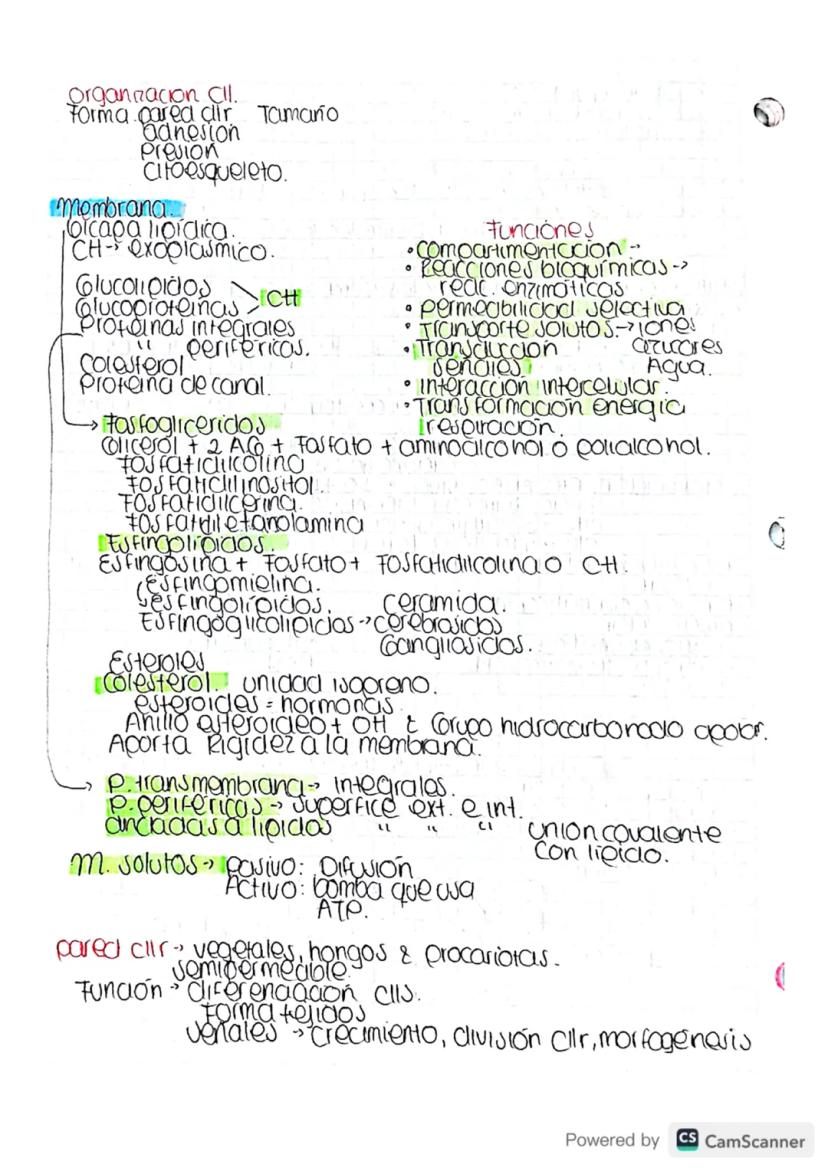 Organización Cll.
Forma pared cllr Tamaño
adhesión
Presión
Citoesqueleto.
Membrana.
Bicapa lipídica.
CH → exoplasmico.
Glucolípidos
Glucoproteínas > CH
Proteínas integrales
" periféricas.
Colesterol
Proteína de canal.
Funciones
• Compartimentación -
• Reacciones bioquímicas →
reac. enzimáticas
• Permeabilidad selectiva
• Transporte solutos → iones
azucares
Agua.
• Transducción
señales
• Interacción intercelular.
• Transformación energía
respiración.
→ Fosfogliceridos
Glicerol + 2 AG + Fosfato + aminoalcohol o polialcohol.
Fosfatidilcolina
Fosfatidilinositol.
Fosfatidilcerina.
Fosfatidiletanolamina
Esfingolípidos.
Esfingosina + Fosfato + Fosfatidilcolina o CH
Esfingomielina.
Esfingolípidos. Ceramida.
Esfingoglicolipidos → cerebrosidos
Gangliosidos.
Esteroles
Colesterol. unidad isopreno.
esteroides = hormonas
Anillo esteroideo + OH & Grupo hidrocarbonado apolar.
Aporta Rigidez a la membrana.
→ P. transmembrana → integrales.
P. periféricas → superfice ext. e int.
ancladas a lípidos " " " union covalente
con lípido.
M. solutos → Pasivo: Difusión
Activo: bomba que usa
ATP.
pared cllr → vegetales, hongos & procariotas.
semipermeable.
Función → diferenciación clls.
Forma tejidos
señales → crecimiento, división cllr, morfogénesis
Powered by CS CamScanner